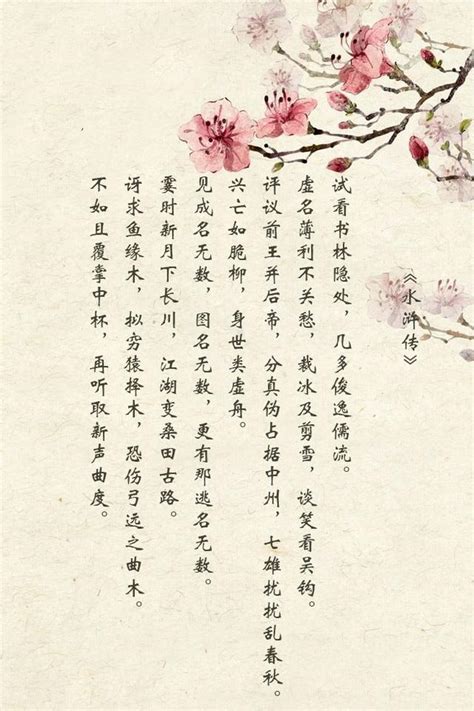 《水浒传》
试看书林隐处，几多俊逸儒流。
虚名薄利不关愁，裁冰及剪雪，谈笑看吴钩。
评议前王并后帝，分真伪占据中州，七雄扰扰乱春秋。
兴亡如脆柳，身世类虚舟。
见成名无数，图名无数，更有那逃名无数。
霎时新月下长川，江湖变桑田古路。
讶求鱼缘木，拟穷猿择木，恐伤弓远之曲木。
不如且覆掌中杯，再听取新声曲度。